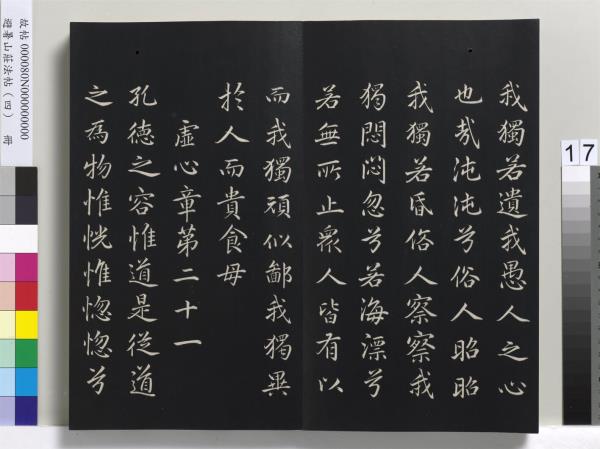 我獨若遺我愚人之心
也㦲沌沌兮俗人昭昭
我獨若昏俗人察察我
獨悶悶忽兮若海漂兮
若無所止衆人皆有以
而我獨頑似鄙我獨異
於人而貴食母
虛心章第二十一
孔德之容惟道是從道
之爲物惟恍惟惚惚兮
17
故帖 000080N000000000
避暑山莊法帖（四） 冊